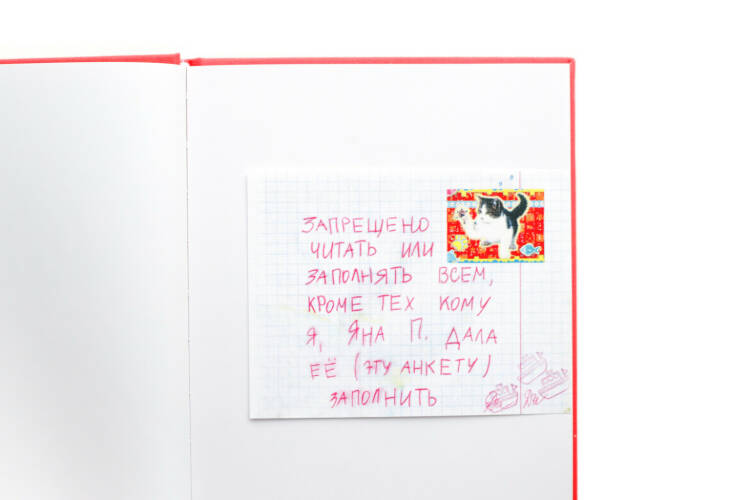 ЗАПРЕЩЕНО
ЧИТАТЬ ИЛИ
ЗАПОЛНЯТЬ ВСЕМ,
КРОМЕ ТЕХ КОМУ
Я, ЯНА П. ДАЛА
ЕЁ (ЭТУ АНКЕТУ)
ЗАПОЛНИТЬ